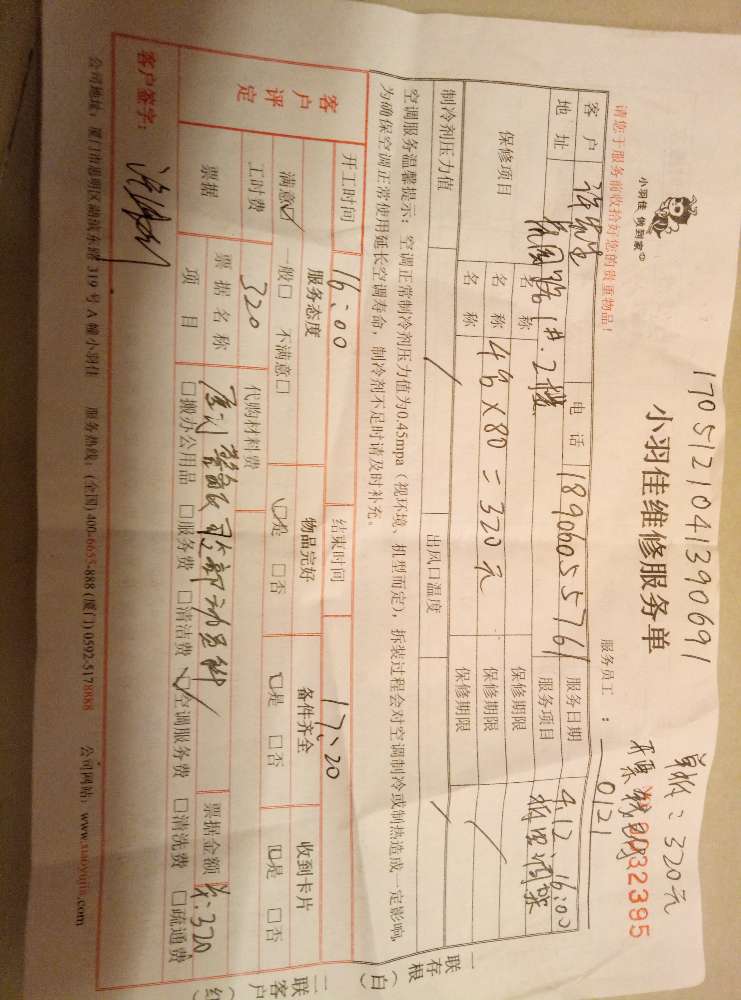 1705121041390691
单价：320元
小羽佳 做到家
小羽佳维修服务单
服务员工：
0121
0032395
请您于服务前收拾好您的贵重物品！
客户
电话 18906055761
服务日期 4.12 16:00
地址
2楼
服务项目
保修项目
名称
保修期限
名称 4台×80=320元
保修期限
名称
保修期限
制冷剂压力值 /
出风口温度 /
空调服务温馨提示：空调正常制冷剂压力值为0.45mpa（视环境、机型而定），拆装过程会对空调制冷或制热造成一定影响，
为确保空调正常使用延长空调寿命，制冷剂不足时请及时补充。
开工时间 16:00
结束时间 17:20
客户评定
服务态度
物品完好
备件齐全
收到卡片
满意☑ 一般□ 不满意□
☑是 □否
□是 □否
□是 □否
工时费 320
代购材料费
票据
票据名称
票据金额 ¥:320
项目
□搬办公用品 □服务费 □清洁费 ☑空调服务费 □清洗费 □疏通费
客户签字：
公司地址：厦门市思明区湖滨东路319号A幢小羽佳 服务热线：(全国)400-6655-888 (厦门)0592-5178888 公司网站：www.xiaoyujia.com
一联存根（白
二联客户（红